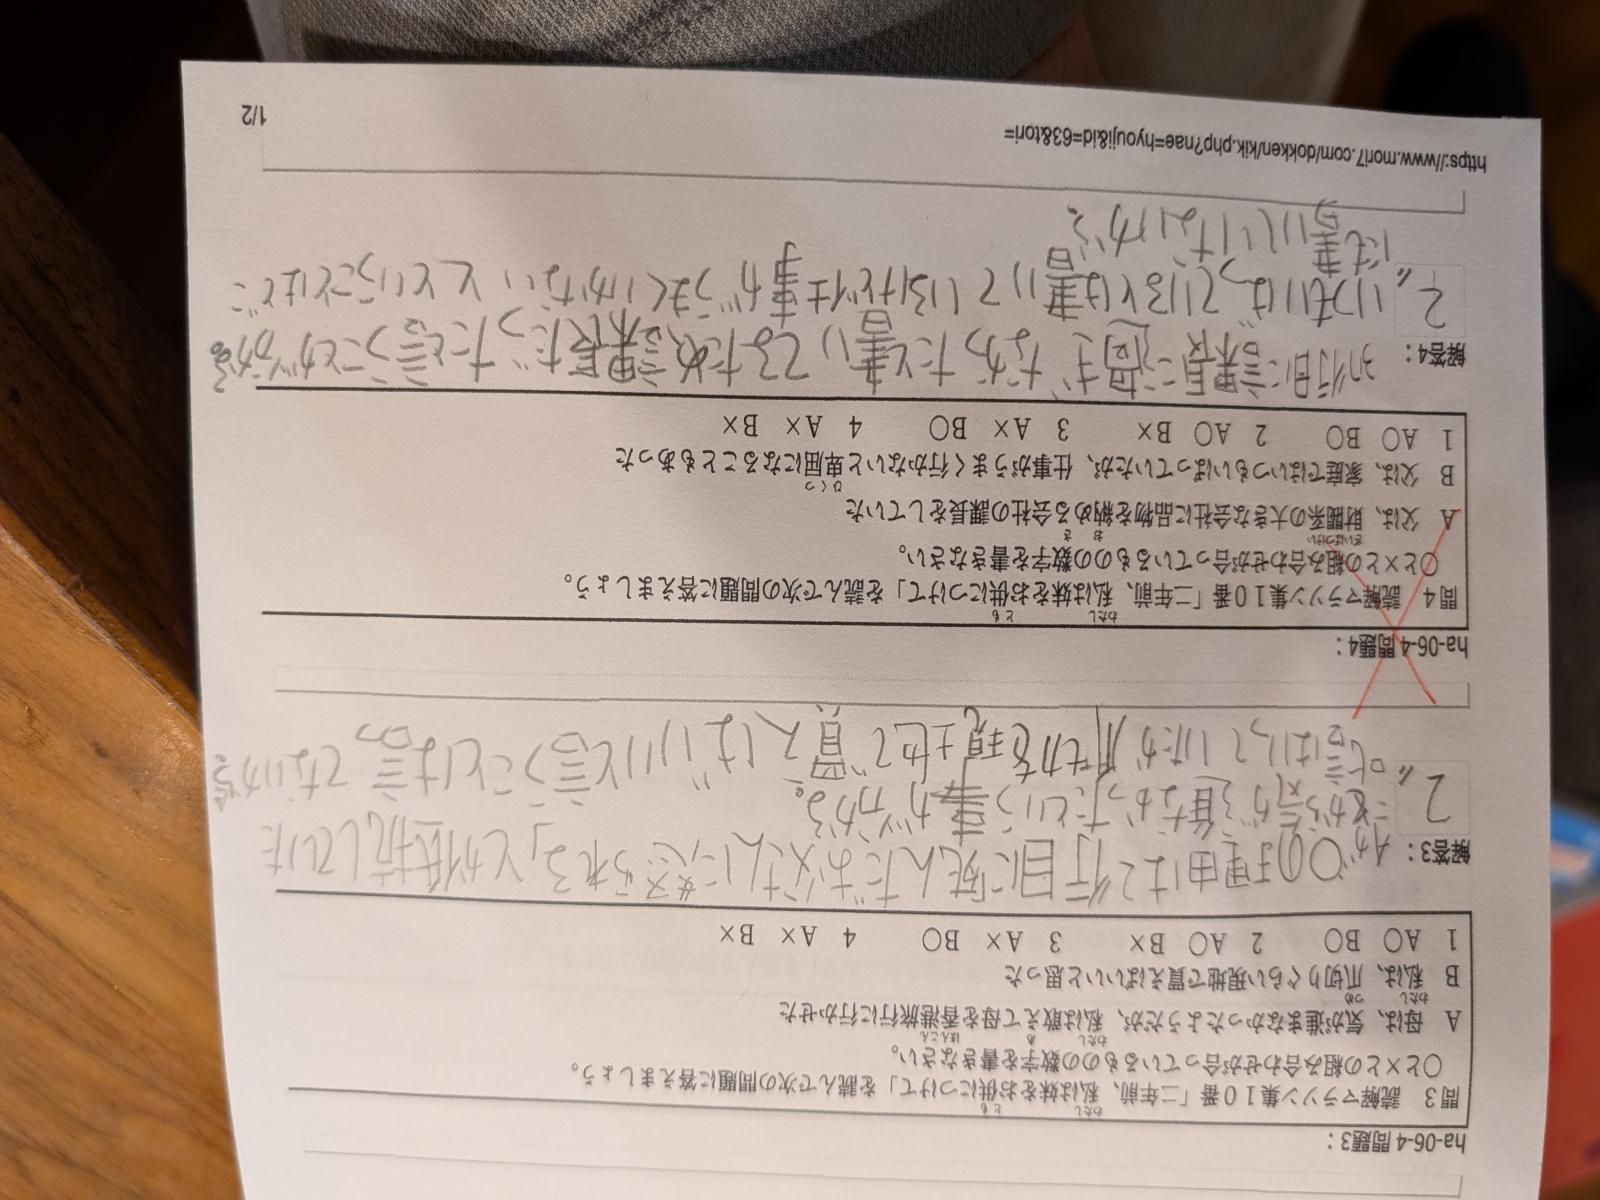 ha-06-4 問題3：
問3 読解マラソン集10番「二年前、私は妹をお供につけて」を読んで次の問題に答えましょう。
○と×との組み合わせが合っているものの数字を書きなさい。
A 母は、気が進まなかったようだが、私は敢えて母を香港旅行に行かせた
B 私は、爪切りぐらい現地で買えばいいと思った
1 A○ B○ 2 A○ B× 3 A× B○ 4 A× B×
解答3：
Aが○の理由は2行目に死んだお父さんに怒られる」とか低抗していた
ことから気が進なかったという事が分かる。
2 叱言はいっていたが爪切を現地で買えばいいと言うことは言ってないから
ha-06-4 問題4：
問4 読解マラソン集10番「二年前、私は妹をお供につけて」を読んで次の問題に答えましょう。
○と×との組み合わせが合っているものの数字を書きなさい。
A 父は、財閥系の大きな会社に品物を納める会社の課長をしていた
B 父は、家庭ではいつもいばっていたが、仕事がうまく行かないと卑屈になることもあった
1 A○ B○ 2 A○ B× 3 A× B○ 4 A× B×
解答4：
行目に課長に過ぎなかったと書いてるため、課長だったと言うことが分かる。
2 いつもいばっているとは書いているけど仕事がうまくいかないとということはどこ
にも書いないから
https://www.mori7.com/dokken/kik.php?nae=hyouji&id=63&tori=
1/2